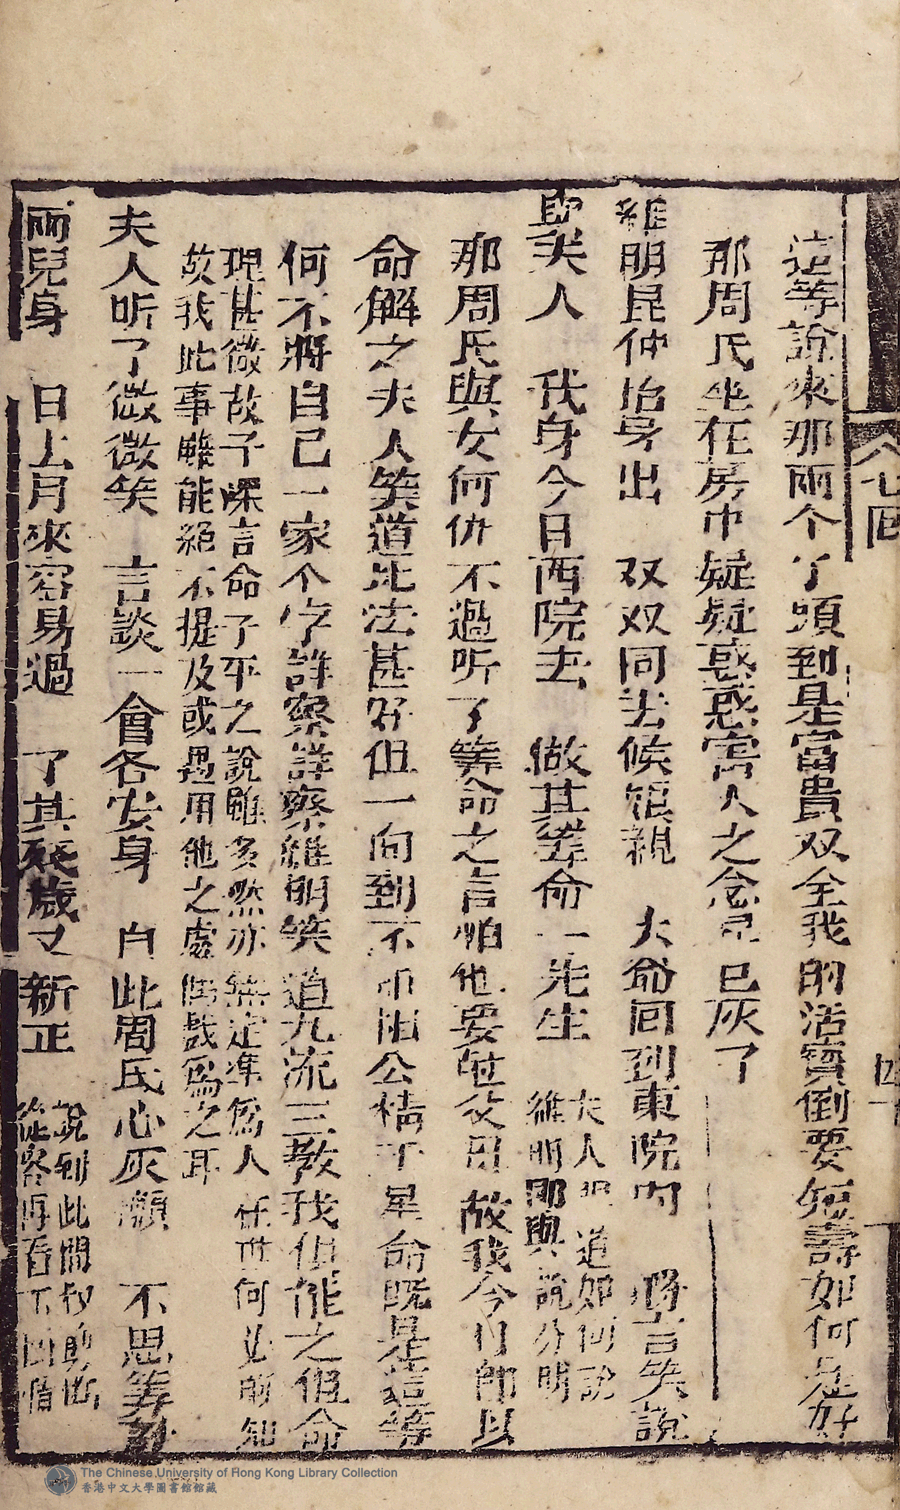 這等說來那兩个丫頭到是富貴双全我的活寶倒要短壽如何是好
那周氏坐在房中疑疑惑惑害人之念已灰了
維明昆仲抬身出 双双同去候娘親 大爺回到東院內 將言笑說
夫人 我身今日西院去 做其筭命一先生 夫人道如何說
維明即與說分明
那周氏與女何仇不過听了筭命之言怕他要故我今以
命解之夫人笑道此法甚好但一向到不相公精于星命既是這等
何不將自己一家个字詳察詳察維明笑道九流三教我但能之但命
理甚微故子深言命子平之說雖多然亦無定準為人在世何必前知
故我此事雖能絕不提及或遇用他之處偶戲為之耳
夫人听了微微笑 言談一會各安身 自此周氏心灰 不思筭
兩兒身 日上月來容易過 了其歲又新正 說到此間
從容再看下回
八七回
The Chinese University of Hong Kong Library Collection
香港中文大學圖書館館藏